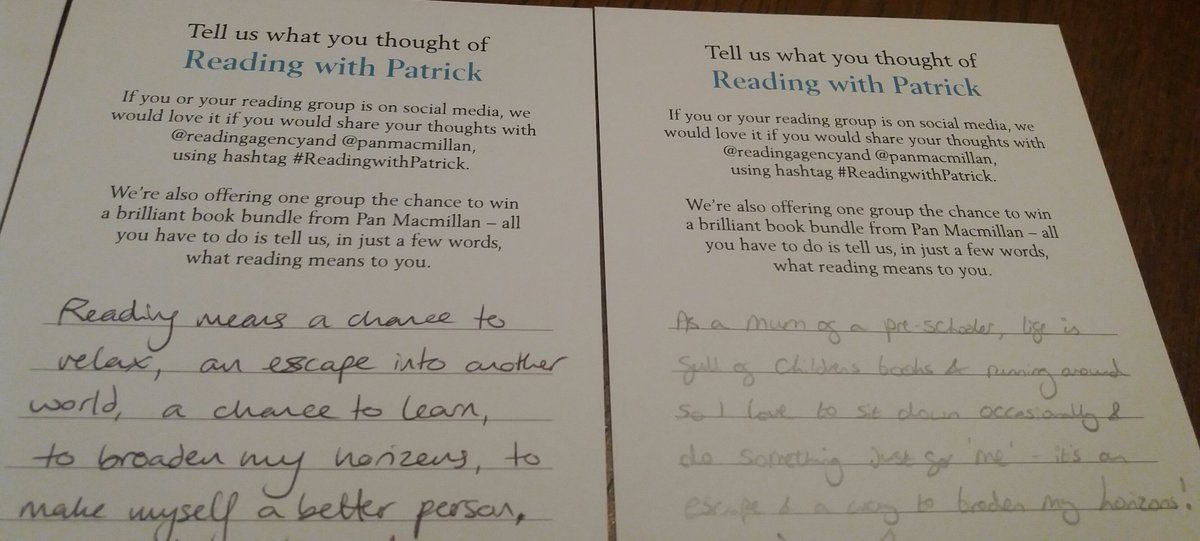 Tell us what you thought of
Reading with Patrick
If you or your reading group is on social media, we
would love it if you would share your thoughts with
@readingagencyand @panmacmillan,
using hashtag #ReadingwithPatrick.
We're also offering one group the chance to win
a brilliant book bundle from Pan Macmillan – all
you have to do is tell us, in just a few words,
what reading means to you.
Reading means a chance to
relax, an escape into another
world, a chance to learn,
to broaden my horizens, to
make myself a better person,
Tell us what you thought of
Reading with Patrick
If you or your reading group is on social media, we
would love it if you would share your thoughts with
@readingagencyand @panmacmillan,
using hashtag #ReadingwithPatrick.
We're also offering one group the chance to win
a brilliant book bundle from Pan Macmillan – all
you have to do is tell us, in just a few words,
what reading means to you.
As a mum of a pre-schooler, life is
full of childrens books & running around
so I love to sit down occasionally &
do something just for 'me' - it's an
escape & a way to broden my horizons!